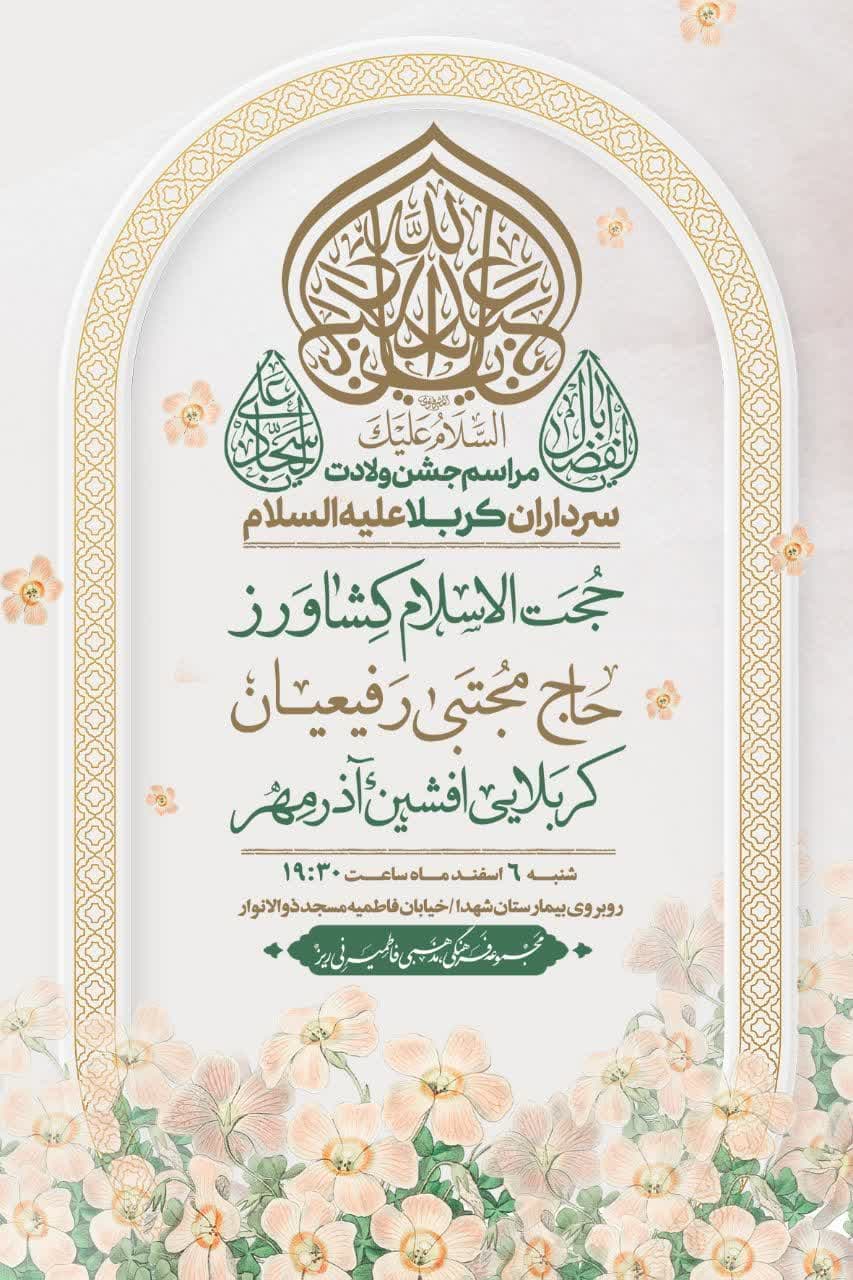 یا اباعبدالله الحسین
السلام علیک
یا ابالفضل
یا علی سجاد
مراسم جشن ولادت
سرداران کربلا علیه السلام
حُجَت الاسلام کِشاوَرز
حاج مُجتَبیٰ رَفیعیان
کَربَلایی افشین آذرمِهر
شنبه ۶ اسفند ماه ساعت ۱۹:۳۰
روبروی بیمارستان شهدا / خیابان فاطمیه مسجد ذوالانوار
مجموعه فرهنگی، مذهبی فاطمیه نی ریز